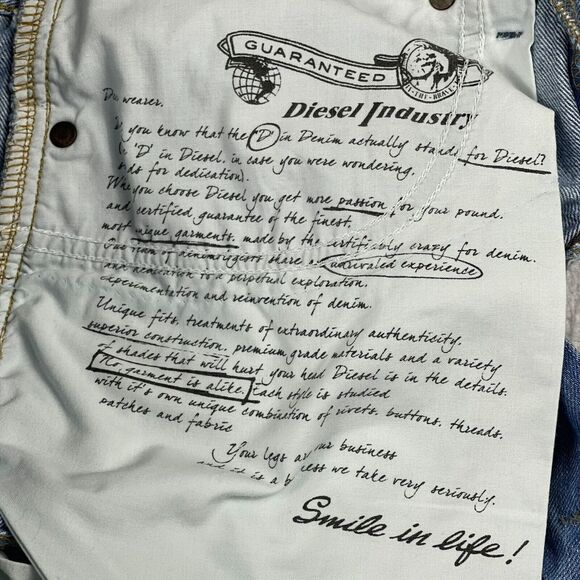 GUARANTEED
Diesel Industry
wearer.
you know that the 'D' in Denim actually stands for Diesel?
'D' in Diesel, in case you were wondering.
for dedication).
you choose Diesel you get more passion for your pound.
and certified guarantee of the finest,
most unique garments, made by the certifiably crazy for denim.
Our team of share unrivaled experience
and dedication to a perpetual exploration,
experimentation and reinvention of denim.
Unique fits, treatments of extraordinary authenticity,
superior construction, premium grade materials and a variety
of shades that will hurt your head Diesel is in the details.
No garment is alike. Each style is studied
with it's own unique combination of rivets, buttons, threads,
patches and fabric
Your legs business
and it is a we take very seriously.
Smile in life!